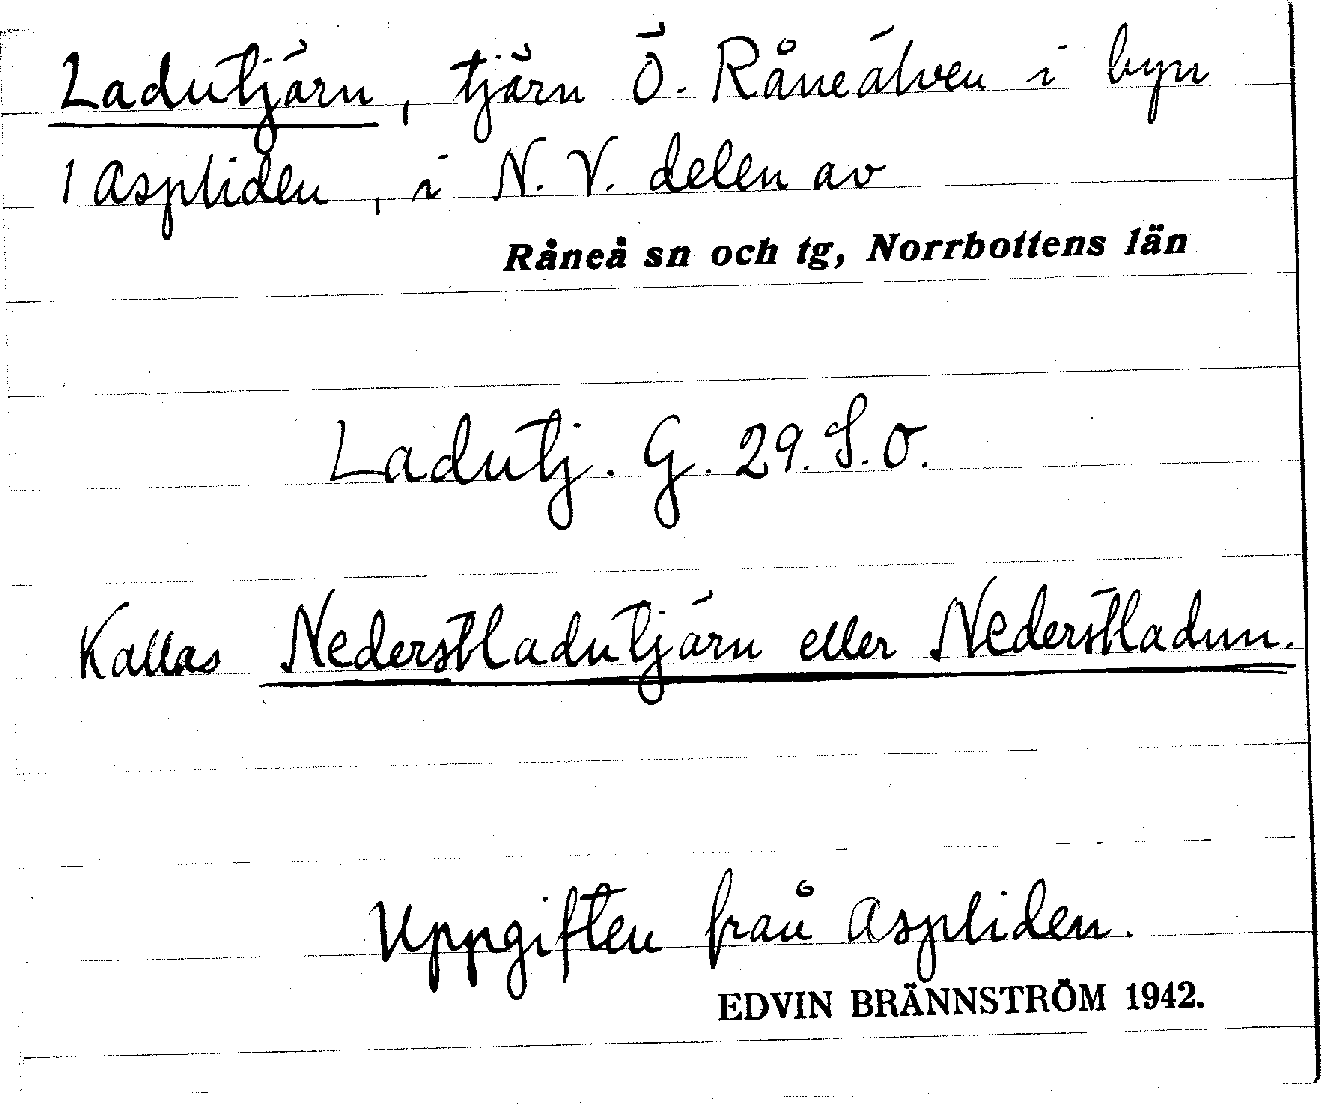 Ladutjärn, tjärn Ö. Råneälven i byn
1 Aspliden, i N. V. delen av
Råneå sn och tg, Norrbottens län
Ladutj. G. 29. S.O.
Kallas Nederstladutjärn eller Nederstladun.
Uppgiften från Aspliden.
EDVIN BRÄNNSTRÖM 1942.